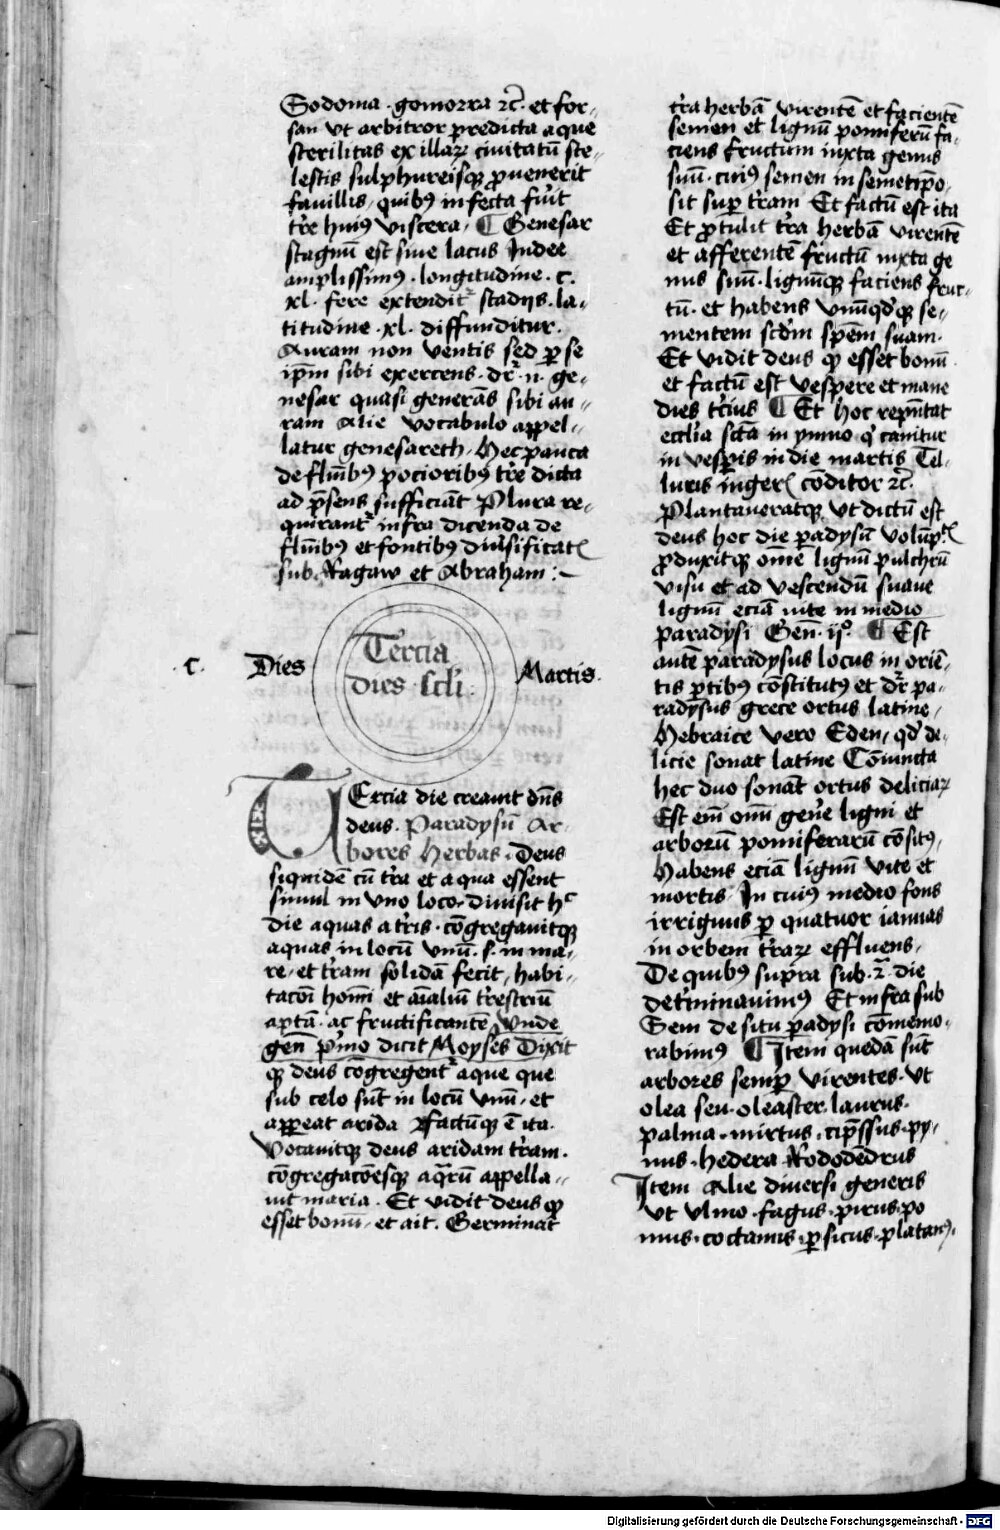 Sodoma · gomorra ꝛc̄ · et for-
san vt arbitror predicta aque
sterilitas ex illaꝝ ciuitatū sce-
lestis sulphureisqꝫ ꝓuenerit
fauillis, quibꝰ infecta fuit
tr̄e huiꝰ viscera, ¶ Genesar
stagnū est siue lacus Iudee
amplissimꝰ · longitudine · c ·
xl · fere extendit᷑ stadijs · la-
titudine · xl · diffunditur ·
Auram non ventis sed ꝑ se
ip̄m sibi exercens · dr̄ · n · ge-
nesar quasi generās sibi au-
ram Alie vocabulo appel-
latur genesareth, Hec pauca
de flūībꝰ pocioribꝰ tr̄e dicta
ad p̄sens sufficiāt Plura re-
quirant᷑ infra dicenda de
flūībꝰ et fontibꝰ diūsificatꝭ
sub Ragaw et Abraham :~
· C · Dies
Tercia
dies scl̄i ·
Martis ·
XIX
TErcia die creauit dn̄s
deus · Paradysū Ar-
bores Herbas · Deus
siquidē cū tr̄a et aqua essent
simul in vno loco · diuisit hᶜ
die aquas a tr̄is · cōgregauitqꝫ
aquas in locū vnū · s · in ma-
re, et tr̄am solidā fecit, habi-
tac̄oī hom̄i et aīaliū tr̄estriū
aptā · ac fructificantē Vnde
gen̄ p̄mo dicit Moyses Dixit
qꝫ deus cōgregent᷑ aque que
sub celo sūt in locū vnū, et
appareat arida Factūqꝫ ē ita ·
Vocauitqꝫ deus aridam tr̄am ·
cōgregac̄oesqꝫ aqrū appella-
uit maria · Et vidit deus qꝫ
esset bonū, et ait · Germinat
tr̄a herbā virentē et facientē
semen et lignū pomiferū fa-
ciens fructum iuxta genus
suū · cuiꝰ semen in semetip̄o ·
sit suꝑ tr̄am Et factū est ita
Et ꝓtulit tr̄a herbā virentē
et afferentē fructū iuxta ge
nus suū · lignūqꝫ faciens fruc-
tū · et habens vnūqd'qꝫ se-
mentem scd'm spēm suam ·
Et vidit deus qꝫ esset bonū ·
et factū est vespere et mane
dies tr̄cius ¶ Et hoc rep̄ntat
ecclia scā in ymno qͥ canitur
in vesꝑis in die martis Tel-
luris īngerꝭ cōditor ꝛc̄ ·
Plantaueratqꝫ vt dictū est
deus hoc die ꝑadysū volūp̄tꝭ
ꝓduxitqꝫ om̄e lignū pulchrū
visu et ad vescendū suaue
lignū eciā vite in medio
paradysi Gen̄ · ijº · ¶ Est
autē paradysus locus in oriē-
tis ꝑtibꝰ cōstitutꝰ et dr̄ pa-
radysus grece ortus latine,
Hebraice vero Eden, qd' de-
licie sonat latine Cōiuncta
hec duo sonāt ortus deliciaꝝ
Est em̄ om̄i gen̄e ligni et
arborū pomiferarū cōsitꝰ,
Habens eciā lignū vite et
mortis In cuiꝰ medio fons
irriguus ꝑ quatuor ianuas
in orbem tr̄aꝝ effluens,
De quibꝰ supra sub · 2ª · die
det̄minauimꝰ Et infra sub
Sem de situ ꝑadysi cōmemo-
rabimꝰ ¶ Item quedā sūt
arbores semꝑ virentes · vt
olea seu · oleaster · laurus ·
palma · mirtus · cip̄ssus · py-
nus · hedera Rododēdrus
Item Alie diuersi generis
vt vlmo · fagus · pirus · po
mus · coctanus · ꝑsicus · platanꝰ ·
Digitalisierung gefördert durch die Deutsche Forschungsgemeinschaft - DFG